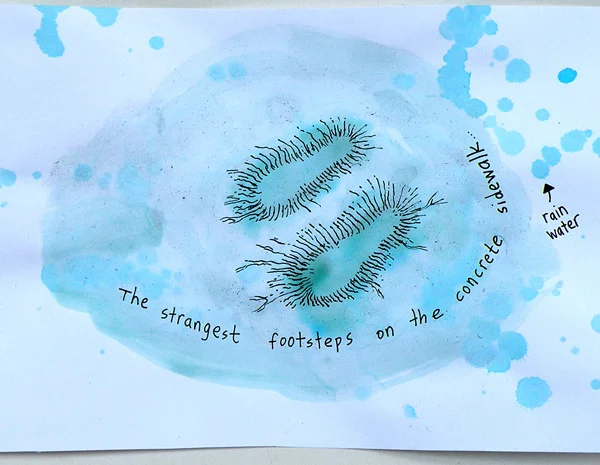 The strangest footsteps on the concrete sidewalk...
rain
water